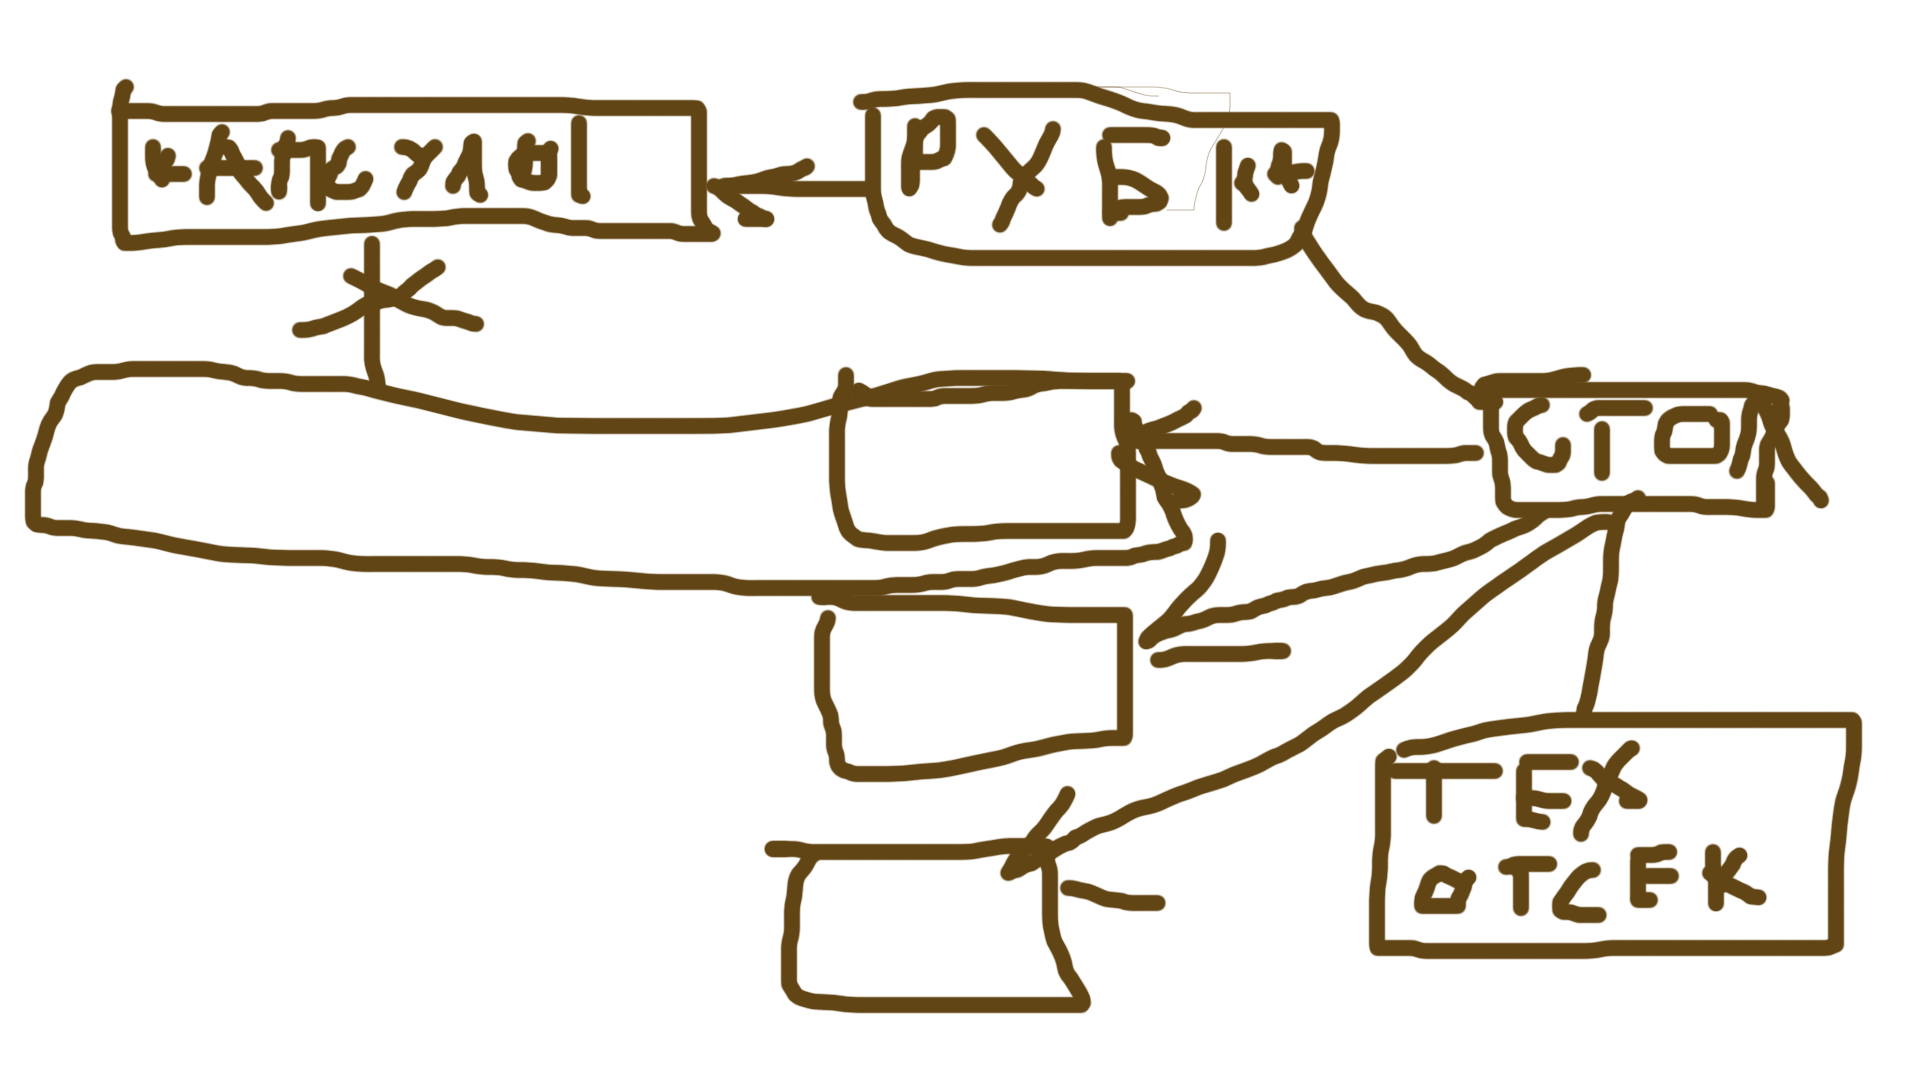 КАПСУЛЫ
РУБКА
СТОЛ
ТЕХ
ОТСЕК